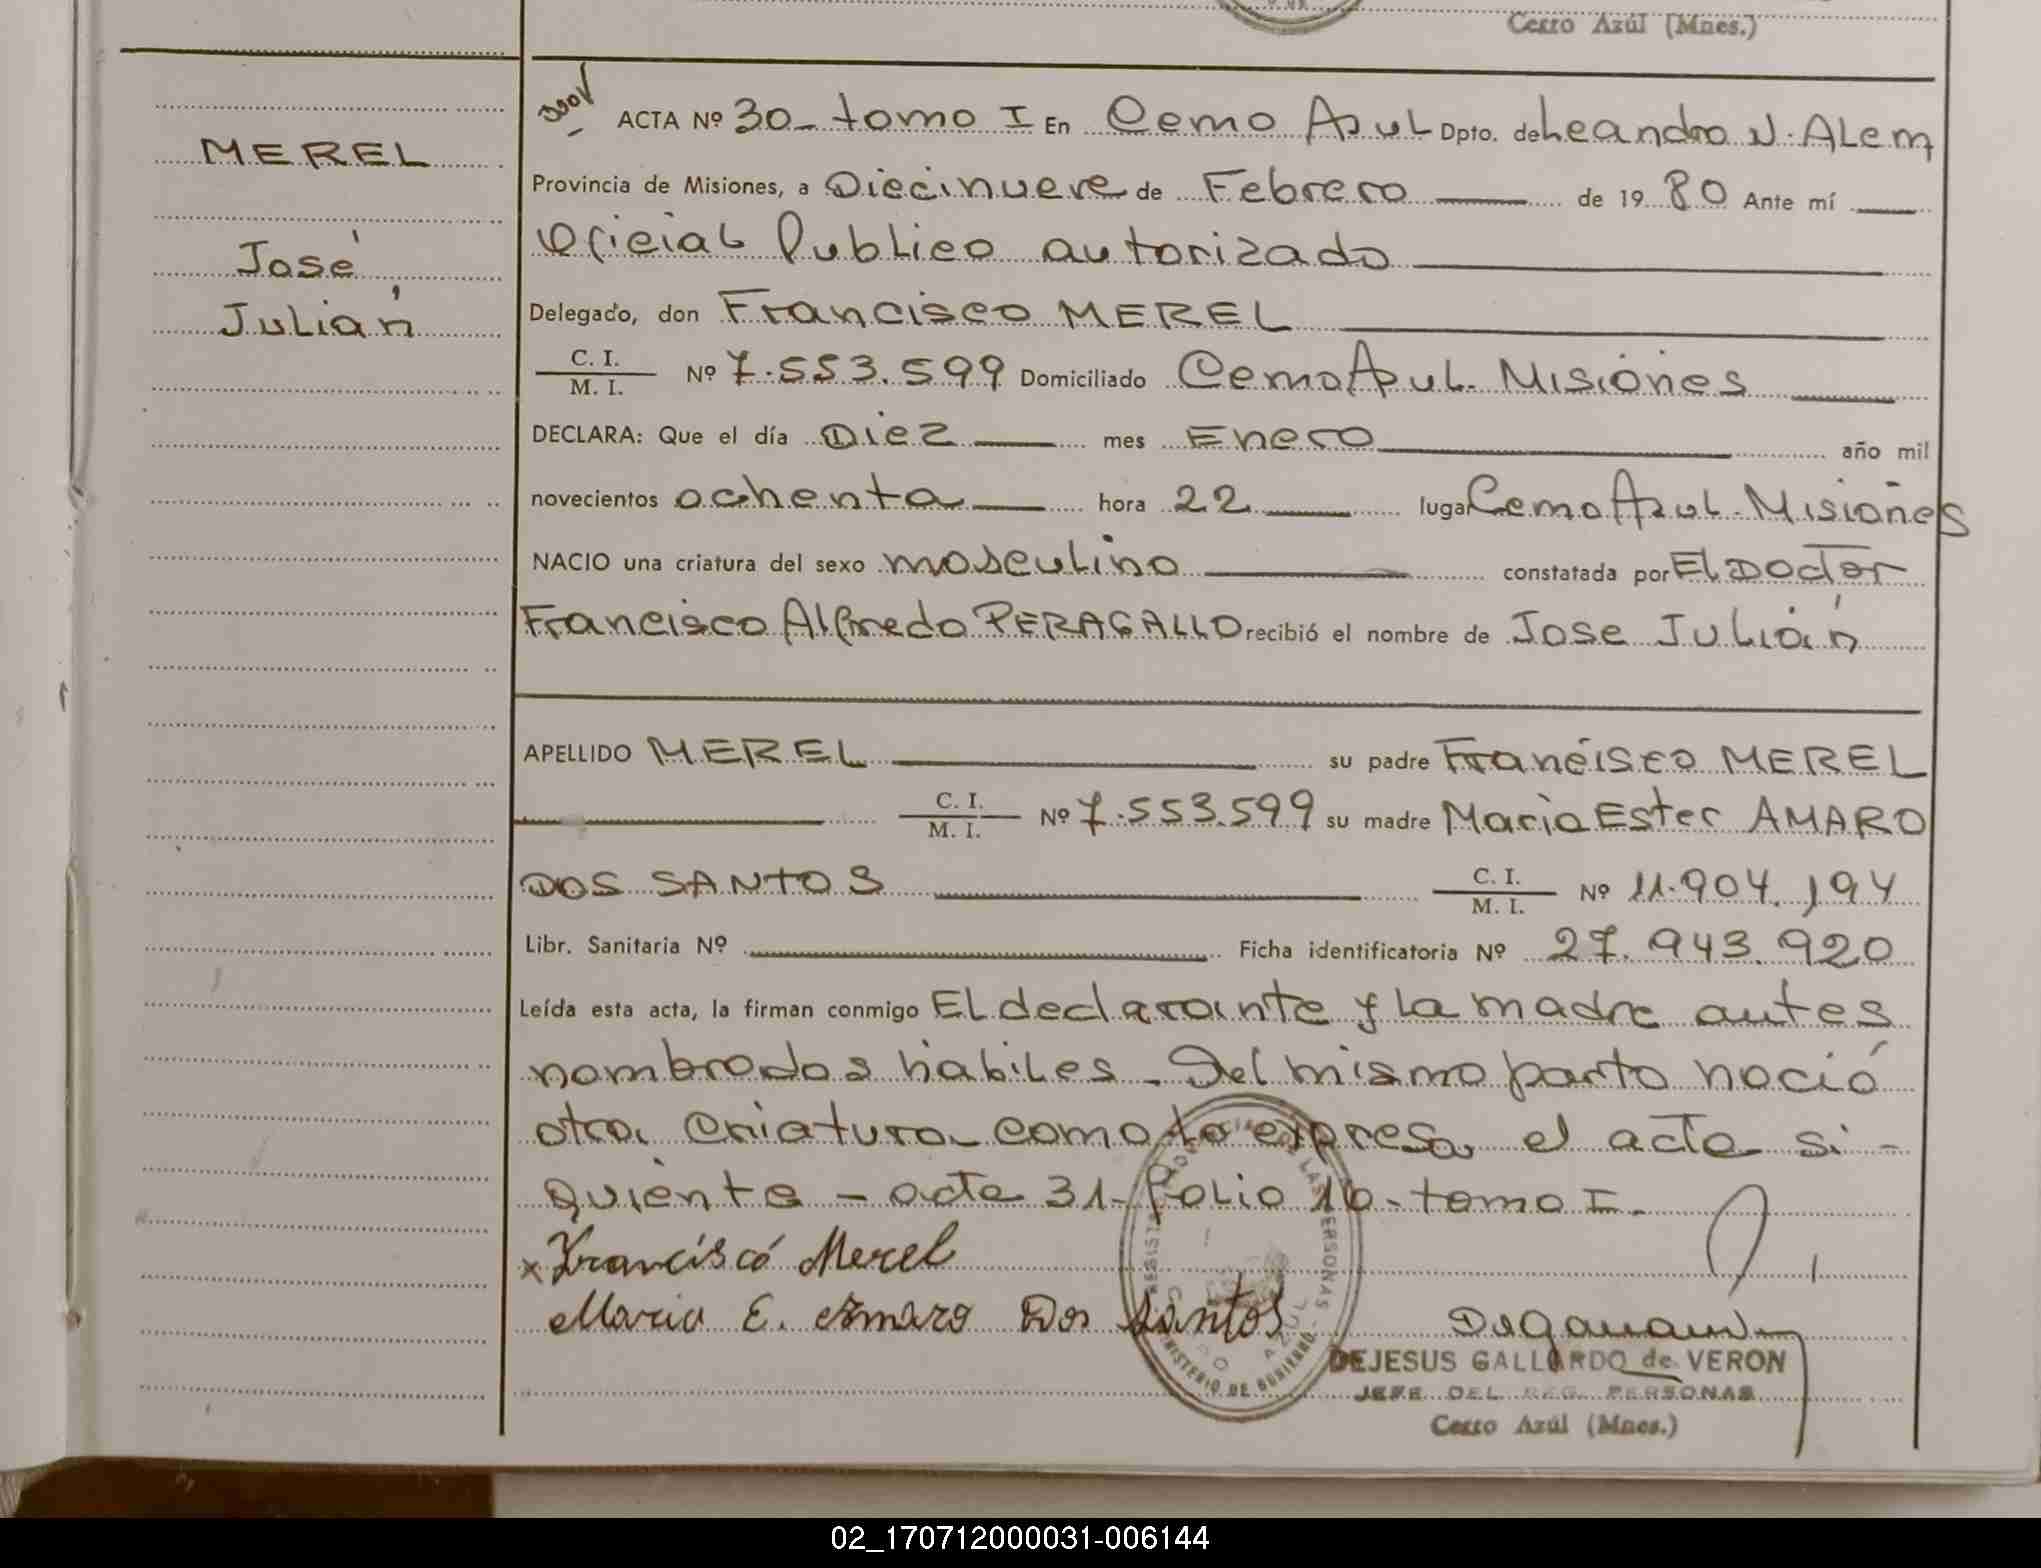 Cerro Azúl (Mnes.)
ACTA Nº 30- tomo I En Cerro Azul Dpto. de Leandro N. ALem
MEREL
Provincia de Misiones, a Diecinueve de Febrero de 1980 Ante mí
Oficial Publico autorizado
José
Julián
Delegado, don Francisco MEREL
C. I.
M. I. Nº 7.553.599 Domiciliado Cerro Azul. Misiones
DECLARA: Que el día Diez mes Enero año mil
novecientos ochenta hora 22 lugar Cerro Azul. Misiones
NACIO una criatura del sexo masculino constatada por El Doctor
Francisco Alfredo PERAGALLO recibió el nombre de Jose Julián
APELLIDO MEREL su padre Francisco MEREL
C. I.
M. I. Nº 7.553.599 su madre Maria Ester AMARO
DOS SANTOS C. I.
M. I. Nº 11.904.194
Libr. Sanitaria Nº Ficha identificatoria Nº 27.943.920
Leída esta acta, la firman conmigo El declarante y la madre antes
nombrados hábiles. Del mismo parto nació
otra criatura como lo expresa el acta si-
guiente - acta 31- folio 16- tomo I.
x Francisco Merel
Maria E. Amaro Dos Santos
DEJESUS GALLARDO de VERON
JEFE DEL REG. PERSONAS
Cerro Azúl (Mnes.)
02_170712000031-006144